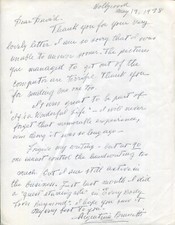 Hollywood
May 17, 1978
Dear David:
Thank you for your very
lovely letter. I am so sorry that I was
unable to answer soon. The picture
you managed to get out of the
computer are terrific. Thank you
for sending me one too.
It was great to be part of
"It's a Wonderful Life". I will never
forget that memorable experience,
even though it was so long ago.
Forgive my writing - but at 90
one cannot control the handwriting too
much. But I am still active in
the business. Just last month I did
a "guest starring role" in
"Love Boyond"; I hope you see it
anyhow best to you -
Argentina Brunetti